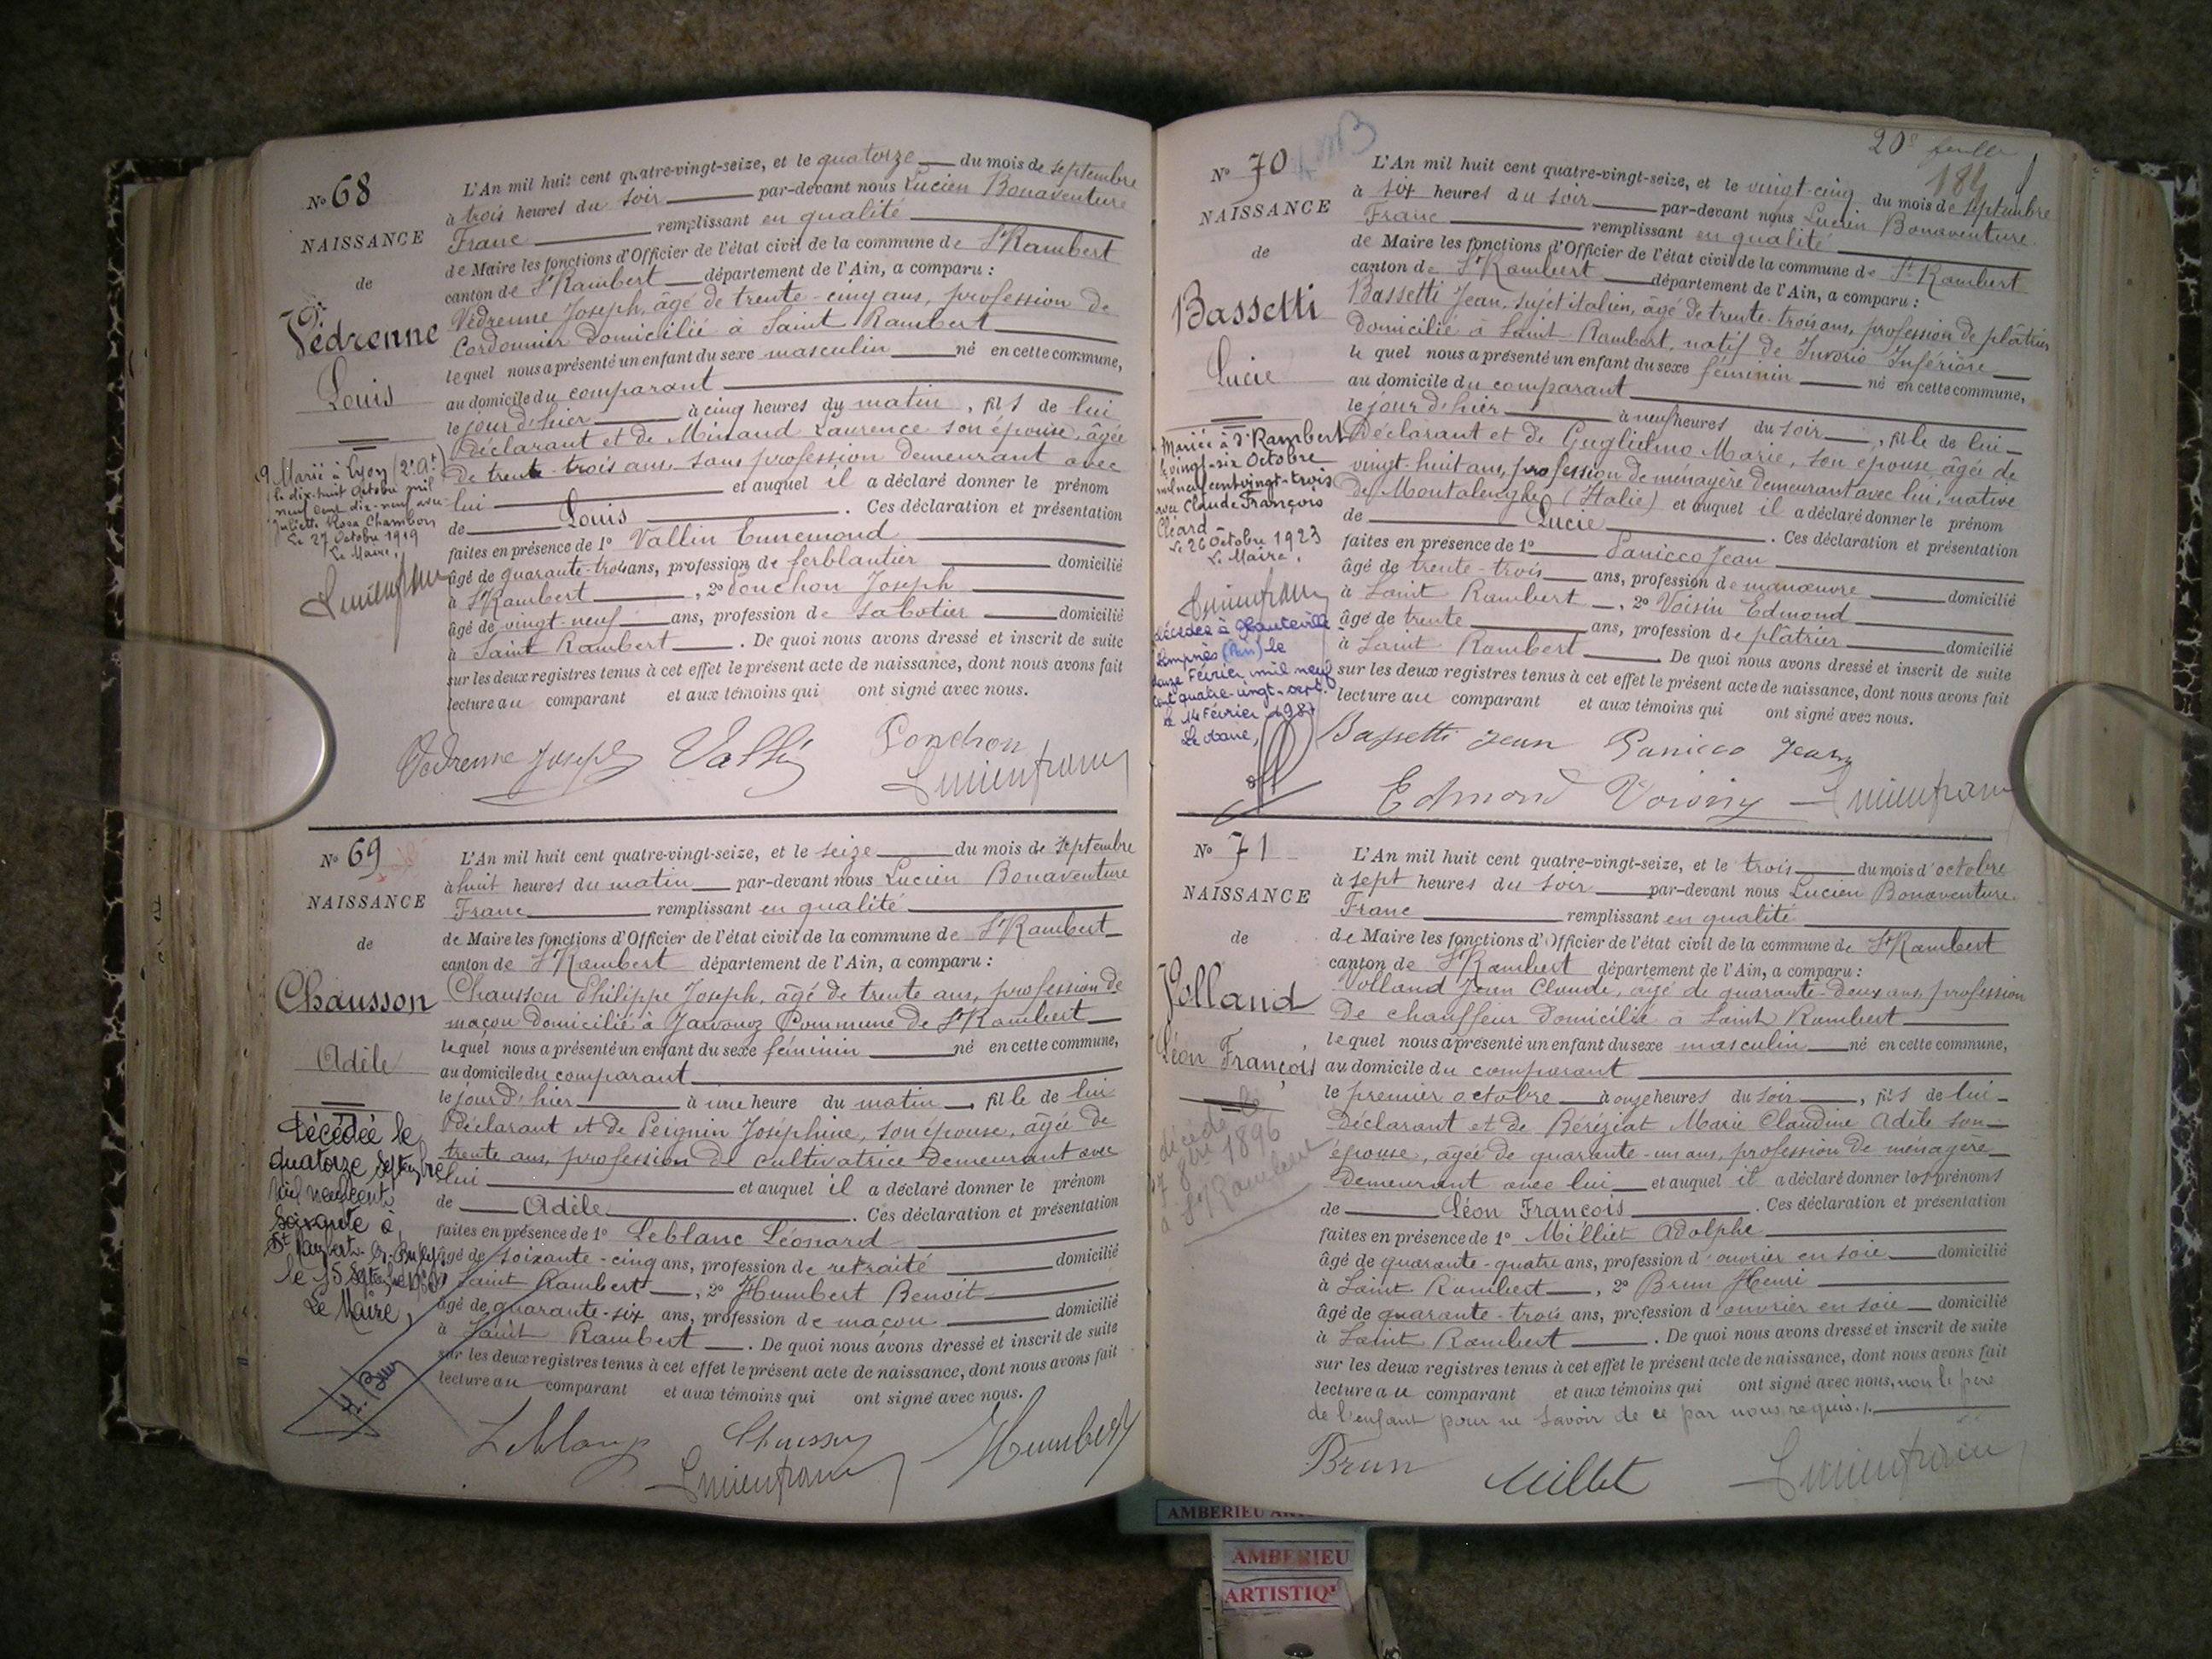 No 68
NAISSANCE
de
Védrenne
Louis
Marié à Lyon (2e At)
le dix-huit Octobre mil
neuf cent dix-neuf avec
Juliette Rosa Chambon
Le 27 Octobre 1919
Le Maire,
Lucienfranc
L'An mil huit cent quatre-vingt-seize, et le quatorze du mois de septembre
à trois heures du soir par-devant nous Lucien Bonaventure
Franc remplissant en qualité
de Maire les fonctions d'Officier de l'état civil de la commune de St Rambert
canton de St Rambert département de l'Ain, a comparu :
Védrenne Joseph, âgé de trente-cinq ans, profession de
Cordonnier domicilié à Saint Rambert
lequel nous a présenté un enfant du sexe masculin né en cette commune,
au domicile du comparant
le jour d'hier à cinq heures du matin, fils de lui
Déclarant et de Minaud Laurence son épouse, âgée
de trente-trois ans, sans profession demeurant avec
lui et auquel il a déclaré donner le prénom
de Louis. Ces déclaration et présentation
faites en présence de 1° Vallin Ennemond
âgé de quarante-trois ans, profession de ferblantier domicilié
à St Rambert, 2° Ponchon Joseph
âgé de vingt-neuf ans, profession de sabotier domicilié
à Saint Rambert. De quoi nous avons dressé et inscrit de suite
sur les deux registres tenus à cet effet le présent acte de naissance, dont nous avons fait
lecture au comparant et aux témoins qui ont signé avec nous.
Védrenne Joseph Vallin Ponchon
Lucienfranc
No 69
NAISSANCE
de
Chausson
Adèle
Décédée le
quatorze Septembre
mil neuf cent
soixante à
St Rambert-en-Bugey
le 15 Septembre 1960
Le Maire,
L'An mil huit cent quatre-vingt-seize, et le seize du mois de septembre
à huit heures du matin par-devant nous Lucien Bonaventure
Franc remplissant en qualité
de Maire les fonctions d'Officier de l'état civil de la commune de St Rambert
canton de St Rambert département de l'Ain, a comparu :
Chausson Philippe Joseph, âgé de trente ans, profession de
maçon domicilié à Javornoz Commune de St Rambert
lequel nous a présenté un enfant du sexe féminin né en cette commune,
au domicile du comparant
le jour d'hier à une heure du matin, fille de lui
Déclarant et de Peugnin Josephine, son épouse, âgée de
trente ans, profession de cultivatrice demeurant avec
lui et auquel il a déclaré donner le prénom
de Adèle. Ces déclaration et présentation
faites en présence de 1° Leblanc Léonard
âgé de soixante-cinq ans, profession de retraité domicilié
à Saint Rambert, 2° Humbert Benoit
âgé de quarante-six ans, profession de maçon domicilié
à Saint Rambert. De quoi nous avons dressé et inscrit de suite
sur les deux registres tenus à cet effet le présent acte de naissance, dont nous avons fait
lecture au comparant et aux témoins qui ont signé avec nous.
Leblanc Chausson Humbert
Lucienfranc
20e feuille
184
No 70
NAISSANCE
de
Bassetti
Lucie
Mariée à St Rambert
le vingt-six Octobre
mil neuf cent vingt-trois
avec Claude François
Cléard
Le 26 Octobre 1923
Le Maire,
Lucienfranc
Décédée à Hauteville
Lompnes (Ain) le
douze Février mil neuf
cent quatre-vingt-sept.
le 14 Février 1987
Le Maire,
L'An mil huit cent quatre-vingt-seize, et le vingt-cinq du mois de septembre
à six heures du soir par-devant nous Lucien Bonaventure
Franc remplissant en qualité
de Maire les fonctions d'Officier de l'état civil de la commune de St Rambert
canton de St Rambert département de l'Ain, a comparu :
Bassetti Jean, sujet italien, âgé de trente-trois ans, profession de plâtrier
domicilié à Saint Rambert, natif de Invorio Inférióre
lequel nous a présenté un enfant du sexe féminin né en cette commune,
au domicile du comparant
le jour d'hier à neuf heures du soir, fille de lui
Déclarant et de Guglielmo Marie, son épouse, âgée de
vingt-huit ans, profession de ménagère demeurant avec lui, native
de Montalenghe (Italie) et auquel il a déclaré donner le prénom
de Lucie. Ces déclaration et présentation
faites en présence de 1° Panicco Jean
âgé de trente-trois ans, profession de manœuvre domicilié
à Saint Rambert, 2° Voisin Edmond
âgé de trente ans, profession de plâtrier domicilié
à Saint Rambert. De quoi nous avons dressé et inscrit de suite
sur les deux registres tenus à cet effet le présent acte de naissance, dont nous avons fait
lecture au comparant et aux témoins qui ont signé avec nous.
Bassetti Jean Panicco Jean
Edmond Voisin Lucienfranc
No 71
NAISSANCE
de
Volland
Léon François
décédé le
17 8bre 1896
à St Rambert
L'An mil huit cent quatre-vingt-seize, et le trois du mois d'octobre
à sept heures du soir par-devant nous Lucien Bonaventure
Franc remplissant en qualité
de Maire les fonctions d'Officier de l'état civil de la commune de St Rambert
canton de St Rambert département de l'Ain, a comparu :
Volland Jean Claude, âgé de quarante-deux ans, profession
De chauffeur domicilié à Saint Rambert
lequel nous a présenté un enfant du sexe masculin né en cette commune,
au domicile du comparant
le premier octobre à onze heures du soir, fils de lui
déclarant et de Béréziat Marie Claudine Adèle son
épouse, âgée de quarante-un ans, profession de ménagère
Demeurant avec lui et auquel il a déclaré donner les prénoms
de Léon François. Ces déclaration et présentation
faites en présence de 1° Milliet Adolphe
âgé de quarante-quatre ans, profession d'ouvrier en soie domicilié
à Saint Rambert, 2° Brun Henri
âgé de quarante-trois ans, profession d'ouvrier en soie domicilié
à Saint Rambert. De quoi nous avons dressé et inscrit de suite
sur les deux registres tenus à cet effet le présent acte de naissance, dont nous avons fait
lecture au comparant et aux témoins qui ont signé avec nous, non le père
de l'enfant pour ne savoir de ce par nous requis.
Brun Millet Lucienfranc
AMBERIEU
AMBERIEU
ARTISTIQ